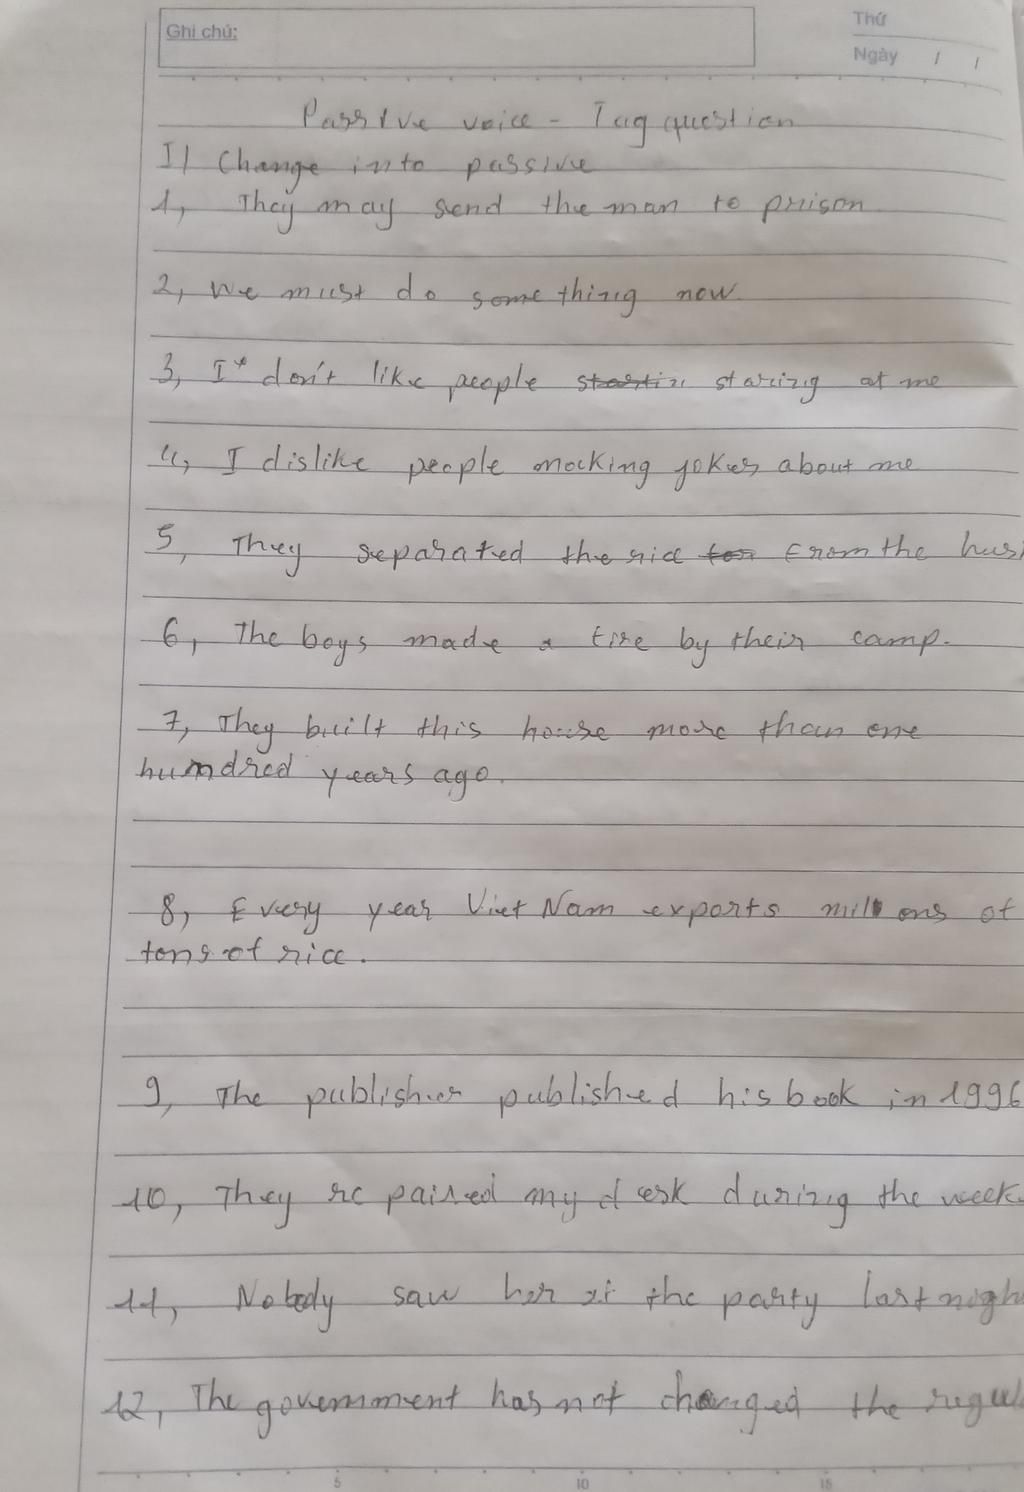 Ghi chú:
Thứ
Ngày / /
Passive voice - Tag question
I) Change into passive
1, They may send the man to prison
2, We must do something now.
3, I don't like people staring at me
4, I dislike people mocking jokes about me
5, They separated the rice from the
6, The boys made a fire by their camp.
7, They built this house more than one
hundred years ago.
8, Every year Viet Nam exports millons of
tons of rice.
9, The publisher published his book in 1996
10, They repaired my desk during the week
11, Nobody saw her at the party last
12, The government has not changed the
5 10 15